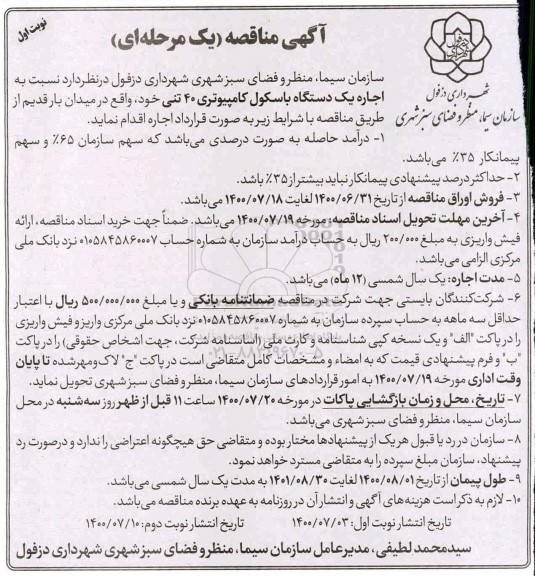 نوبت اول
آگهی مناقصه (یک مرحله‌ای)
شهرداری دزفول
سازمان سیما، منظر و فضای سبز شهری
سازمان سیما، منظر و فضای سبز شهری شهرداری دزفول درنظر دارد نسبت به
اجاره یک دستگاه باسکول کامپیوتری ۴۰ تنی خود، واقع در میدان بار قدیم از
طریق مناقصه با شرایط زیر به صورت قرارداد اجاره اقدام نماید.
۱- درآمد حاصله به صورت درصدی می‌باشد که سهم سازمان ۶۵٪ و سهم
پیمانکار ۳۵٪ می‌باشد.
۲- حداکثر درصد پیشنهادی پیمانکار نباید بیشتر از ۳۵٪ باشد.
۳- فروش اوراق مناقصه از تاریخ ۱۴۰۰/۰۶/۳۱ لغایت ۱۴۰۰/۰۷/۱۸ می‌باشد.
۴- آخرین مهلت تحویل اسناد مناقصه: مورخه ۱۴۰۰/۰۷/۱۹ می‌باشد. ضمناً جهت خرید اسناد مناقصه، ارائه
فیش واریزی به مبلغ ۲۰۰/۰۰۰ ریال به حساب درآمد سازمان به شماره حساب ۰۱۰۵۸۴۵۸۶۰۰۰۷ نزد بانک ملی
مرکزی الزامی می‌باشد.
۵- مدت اجاره: یک سال شمسی (۱۲ ماه) می‌باشد.
۶- شرکت‌کنندگان بایستی جهت شرکت در مناقصه ضمانتنامه بانکی و یا مبلغ ۵۰۰/۰۰۰/۰۰۰ ریال با اعتبار
حداقل سه ماهه به حساب سپرده سازمان به شماره ۰۱۰۵۸۴۵۸۶۰۰۰۷ نزد بانک ملی مرکزی واریز و فیش واریزی
را در پاکت "الف" و یک نسخه کپی شناسنامه و کارت ملی (اساسنامه شرکت، جهت اشخاص حقوقی) را در پاکت
"ب" و فرم پیشنهادی قیمت که به امضاء و مشخصات کامل متقاضی است در پاکت "ج" لاک و مهر شده تا پایان
وقت اداری مورخه ۱۴۰۰/۰۷/۱۹ به امور قراردادهای سازمان سیما، منظر و فضای سبز شهری تحویل نماید.
۷- تاریخ، محل و زمان بازگشایی پاکات در مورخه ۱۴۰۰/۰۷/۲۰ ساعت ۱۱ قبل از ظهر روز سه‌شنبه در محل
سازمان سیما، منظر و فضای سبز شهری می‌باشد.
۸- سازمان در رد یا قبول هر یک از پیشنهادها مختار بوده و متقاضی حق هیچگونه اعتراضی را ندارد و درصورت رد
پیشنهاد، سازمان مبلغ سپرده را به متقاضی مسترد خواهد نمود.
۹- طول پیمان از تاریخ ۱۴۰۰/۰۸/۰۱ لغایت ۱۴۰۱/۰۸/۳۰ به مدت یک سال شمسی می‌باشد.
۱۰- لازم به ذکر است هزینه‌های آگهی و انتشار آن در روزنامه به عهده برنده مناقصه می‌باشد.
تاریخ انتشار نوبت اول: ۱۴۰۰/۰۷/۰۳ تاریخ انتشار نوبت دوم: ۱۴۰۰/۰۷/۱۰
سیدمحمد لطیفی، مدیرعامل سازمان سیما، منظر و فضای سبز شهری شهرداری دزفول